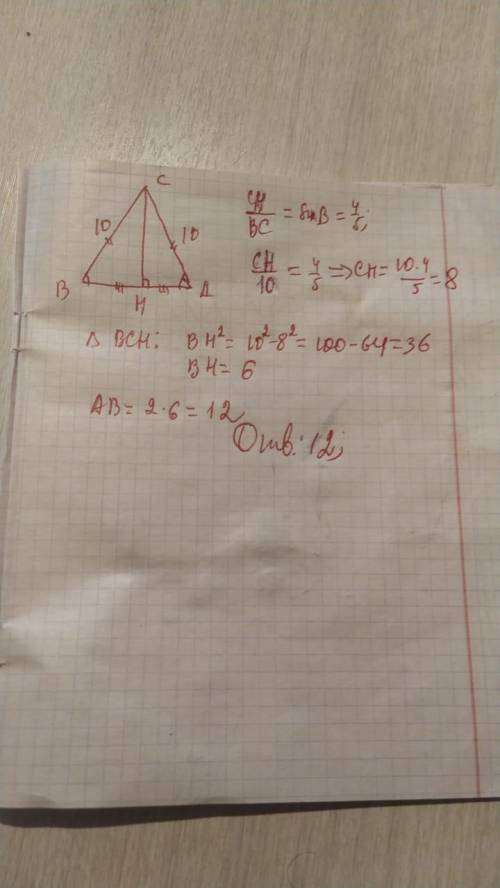 C
10
10
B
H
A
CH/BC = sin B = 4/5;
CH/10 = 4/5 ⇒ CH = 10·4/5 = 8
Δ BCH: BH² = 10² - 8² = 100 - 64 = 36
BH = 6
AB = 2·6 = 12
Отв: 12;